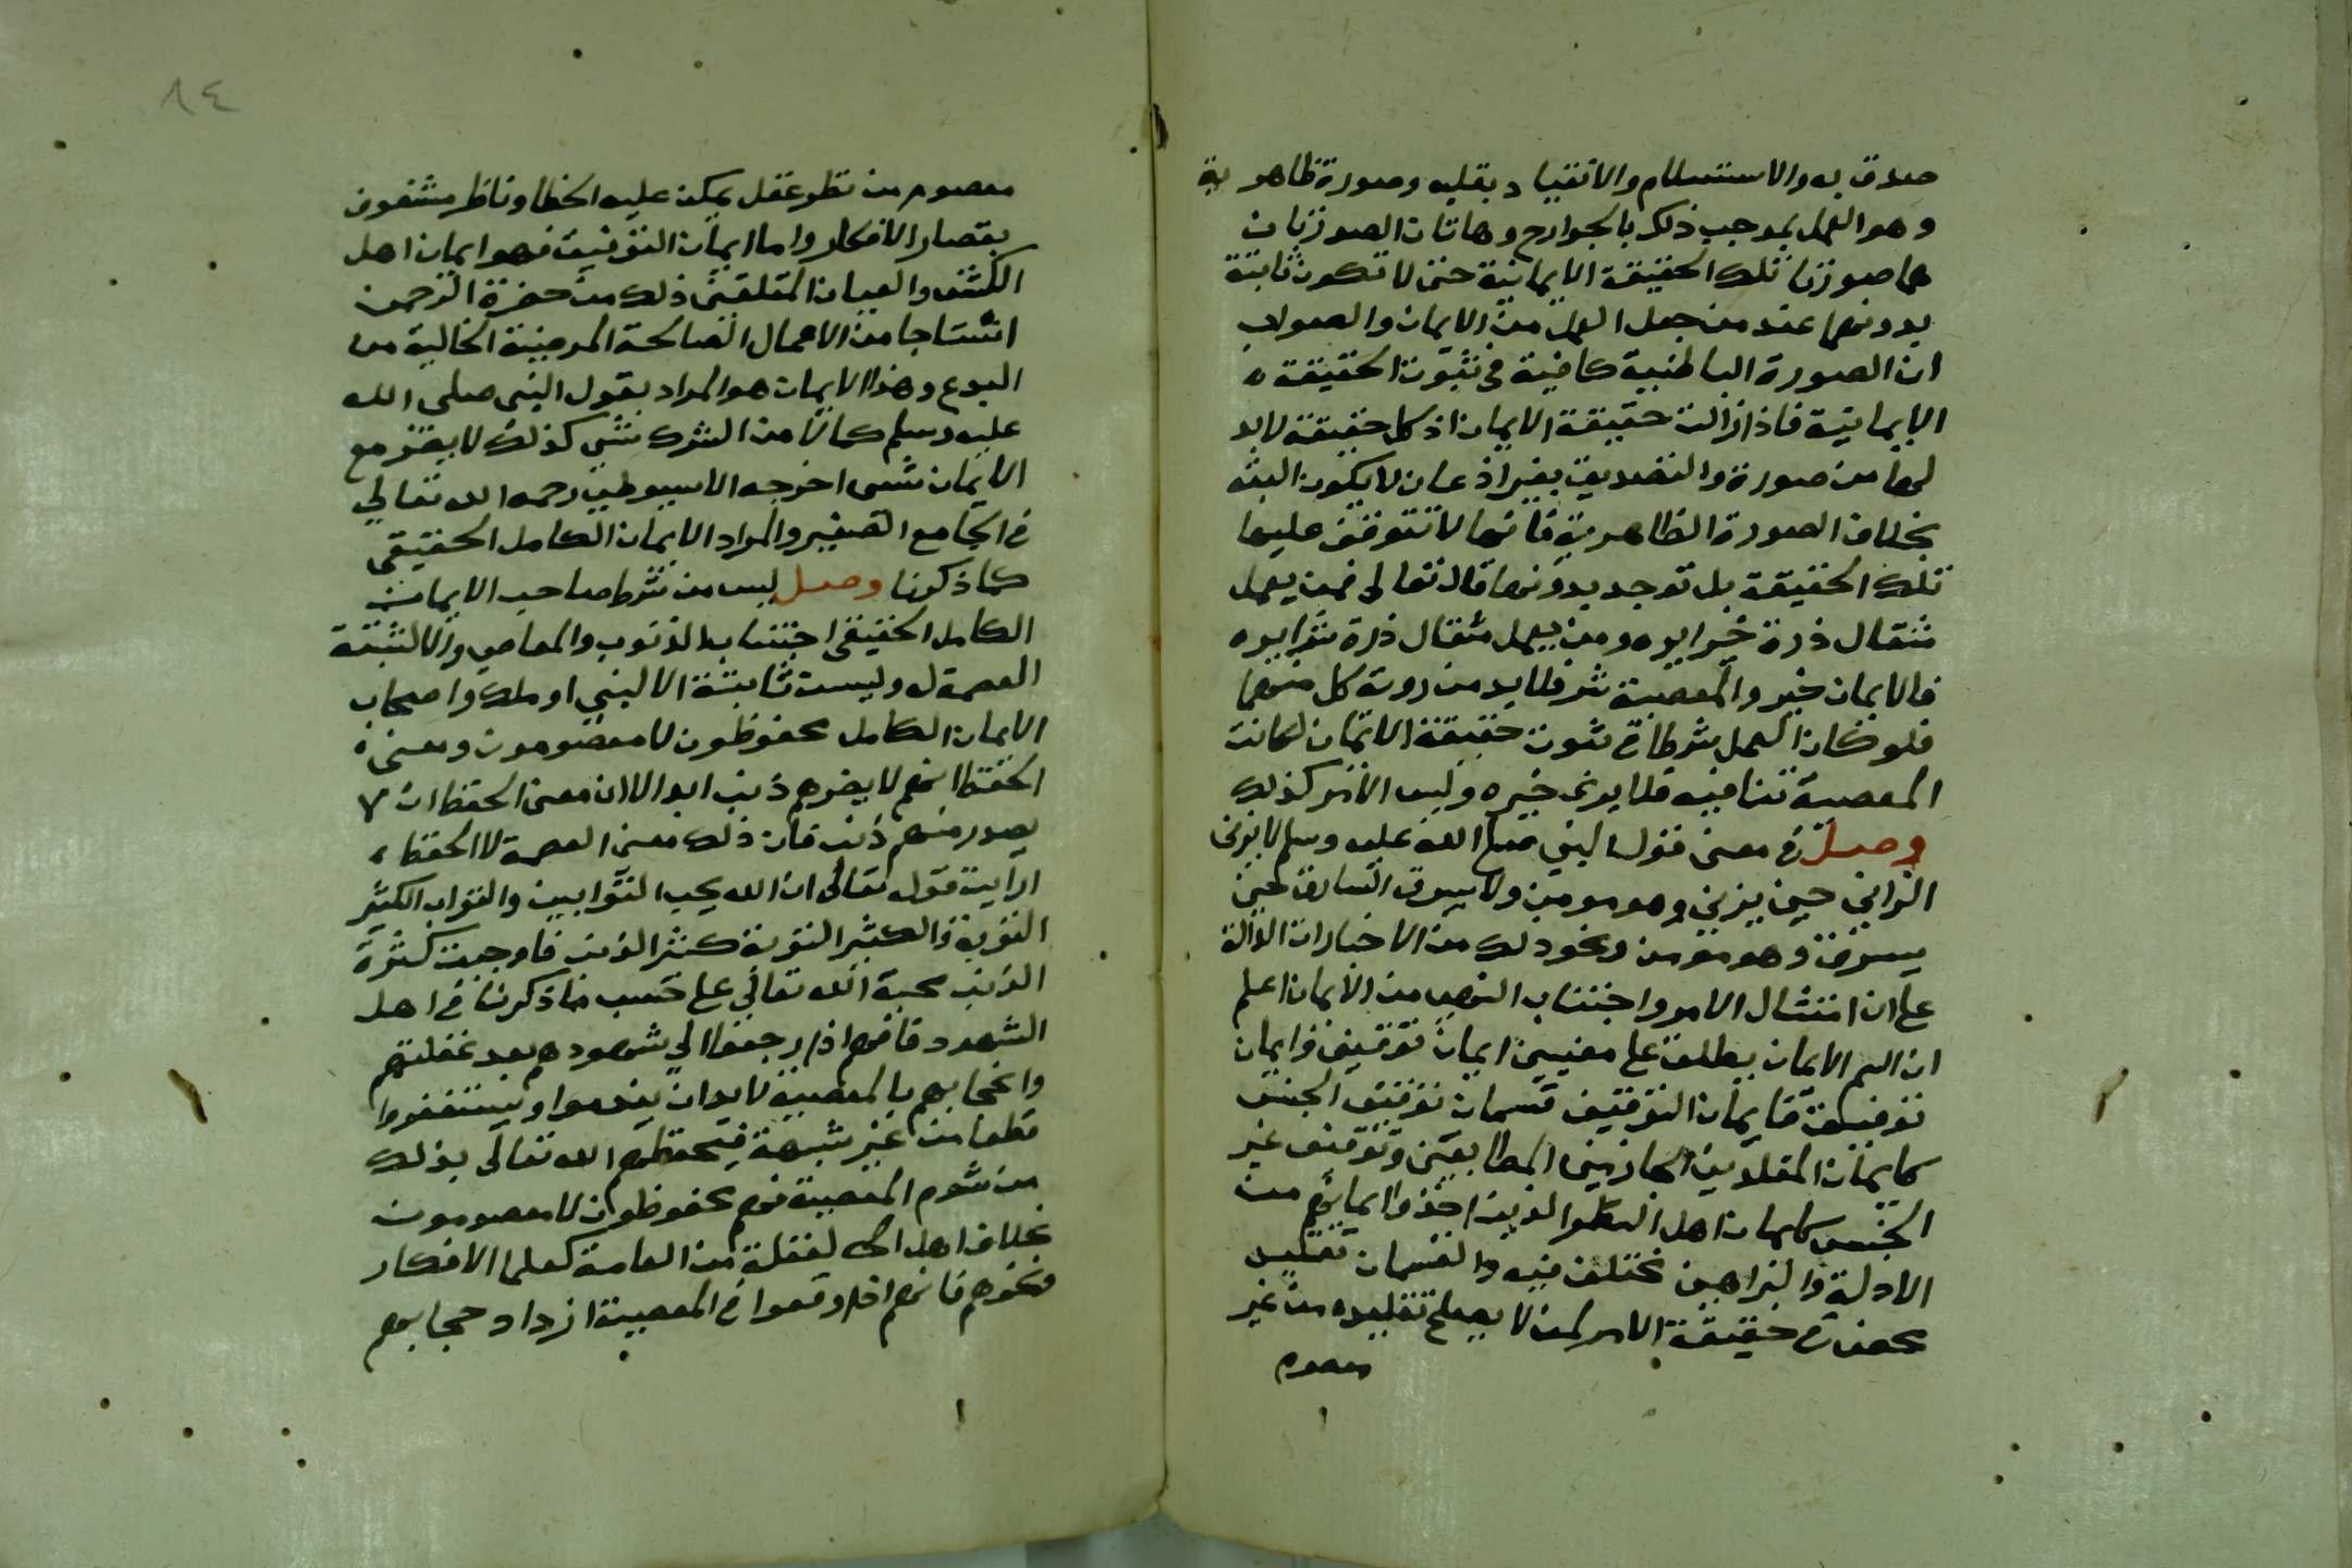 صدق به والاستسلام والانقياد بقلبه وصورة ظاهرية
وهو العمل بموجب ذلك بالجوارح وهاتان الصورتان
هما صورتا تلك الحقيقة الايمانية حتى لا تكون ثابتة
بدونهما عند من جعل العمل من الايمان والصواب
ان الصورة الباطنية كافية في ثبوت الحقيقة
الايمانية فاذا زالت زالت حقيقة الايمان اذ كل حقيقة لابد
لها من صورة والتصديق بغير اذعان لا يكون البته
بخلاف الصورة الظاهرية فانها لا تتوقف عليها
تلك الحقيقة بل توجد بدونها قال تعالى فمن يعمل
مثقال ذرة خيرا يره ومن يعمل مثقال ذرة شرا يره
فالايمان خير والمعصية شر فلا بد من روية كل منهما
فلو كان العمل شرطا في ثبوت حقيقة الايمان لكانت
المعصية تنافيه فلا يرى خيره وليس الامر كذلك
وصل في معنى قول النبي صلى الله عليه وسلم لا يزني
الزاني حين يزني وهو مومن ولا يسرق السارق حين
يسرق وهو مومن ونحو ذلك من الاخبارات الدالة
على ان امتثال الامر واجتناب النهي من الايمان اعلم
ان اسم الايمان يطلق على معنيين ايمان توقيف وايمان
توفيق فايمان التوقيف قسمان توقيف الجنس
كايمان المقلدين الجازمين المطابقين وتوقيف غير
الجنس كايمان اهل النظر الذين اخذوا ايمانهم من
الادلة والبراهين مختلف فيه والقسمان تقليد
محض في حقيقة الامر لمن لا يصلح تقليده من غير
معصوم
٨٤
معصوم من نظر عقل يمكن عليه الخطا وناظر مشغوف
بقصار الافكار واما ايمان التوفيق فهو ايمان اهل
الكشف والعيان المتلقين ذلك من حضرة الرحمن
انتتاجا من الاعمال الصالحة المرضية الخالية من
البدع وهذا الايمان هو المراد بقول النبي صلى الله
عليه وسلم كما لا من الشرك شي كذلك لا يضر مع
الايمان شي اخرجه الاسيوطي رحمه الله تعالي
في الجامع الصغير والمراد الايمان الكامل الحقيقي
كما ذكرنا وصل ليس من شرط صاحب الايمان
الكامل الحقيقي اجتناب الذنوب والمعاصي والا لثبتة
العصمة له وليست ثابتة الا لنبي او ملك واصحاب
الايمان الكامل محفوظون لا معصومون ومعنى
الحفظ انهم لا يضرهم ذنب ابدا لا ان معنى الحفظ ان لا
يصدر منهم ذنب فان ذلك معنى العصمة لا الحفظ
ارايت قوله تعالى ان الله يحب التوابين والتواب الكثير
التوبة والكثير التوبة كثير الذنب فاوجبت كثرة
الذنب محبة الله تعالي على حسب ما ذكرنا في اهل
الشهود فانهم اذا رجعوا الي شهودهم بعد غفلتهم
وانحجابهم بالمعصية لا بد ان يندموا ويستغفروا
قطعا من غير شبهة فيحفظهم الله تعالى بذلك
من شوم المعصية فهم محفوظون لا معصومون
بخلاف اهل الغفلة من العامة كعلما الافكار
ونحوهم فانهم اذا وقعوا في المعصية ازداد حجابهم